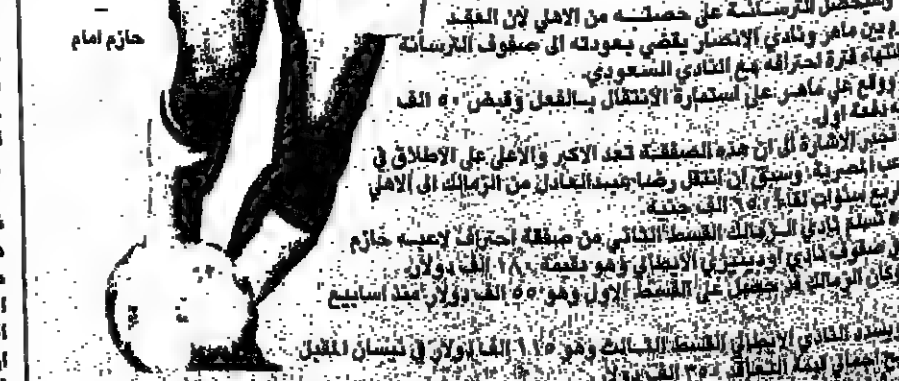 حازم امام
وسيحصل الترسانة على حصته من الاهلي لان العقد
بين ماهر ونادي الانصار يقضي بعودته الى صفوف الترسانة
انتهاء فترة احترافه مع النادي السعودي.
ووقع علي ماهر على استمارة الانتقال بالفعل وقبض ٥٠ الف
دفعة اولى.
تجدر الاشارة الى ان هذه الصفقة تعد الاكبر والاعلى على الاطلاق في
المصرية، وسبق ان انتقل رضا عبدالعادل من الزمالك الى الاهلي
سنوات لقاء الف جنيه.
تسلم نادي الزمالك القسط الثاني من صفقة احتراف لاعبه حازم
صفوف نادي اودينيزي الايطالي وهو بقيمة ١٨٠ الف دولار.
وكان الزمالك قد حصل على القسط الاول وهو ٥٥ الف دولار منذ اسابيع
النادي الايطالي القسط الثالث وهو ١١٥ الف دولار في نيسان المقبل
اجمالي قيمة التعاقد ٣٥٠ الف دولار